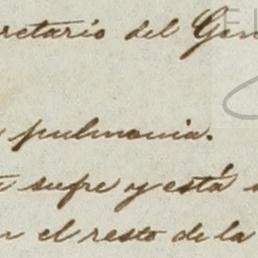 retario del Gen
pulmonia.
sufre y está
n el resto de la